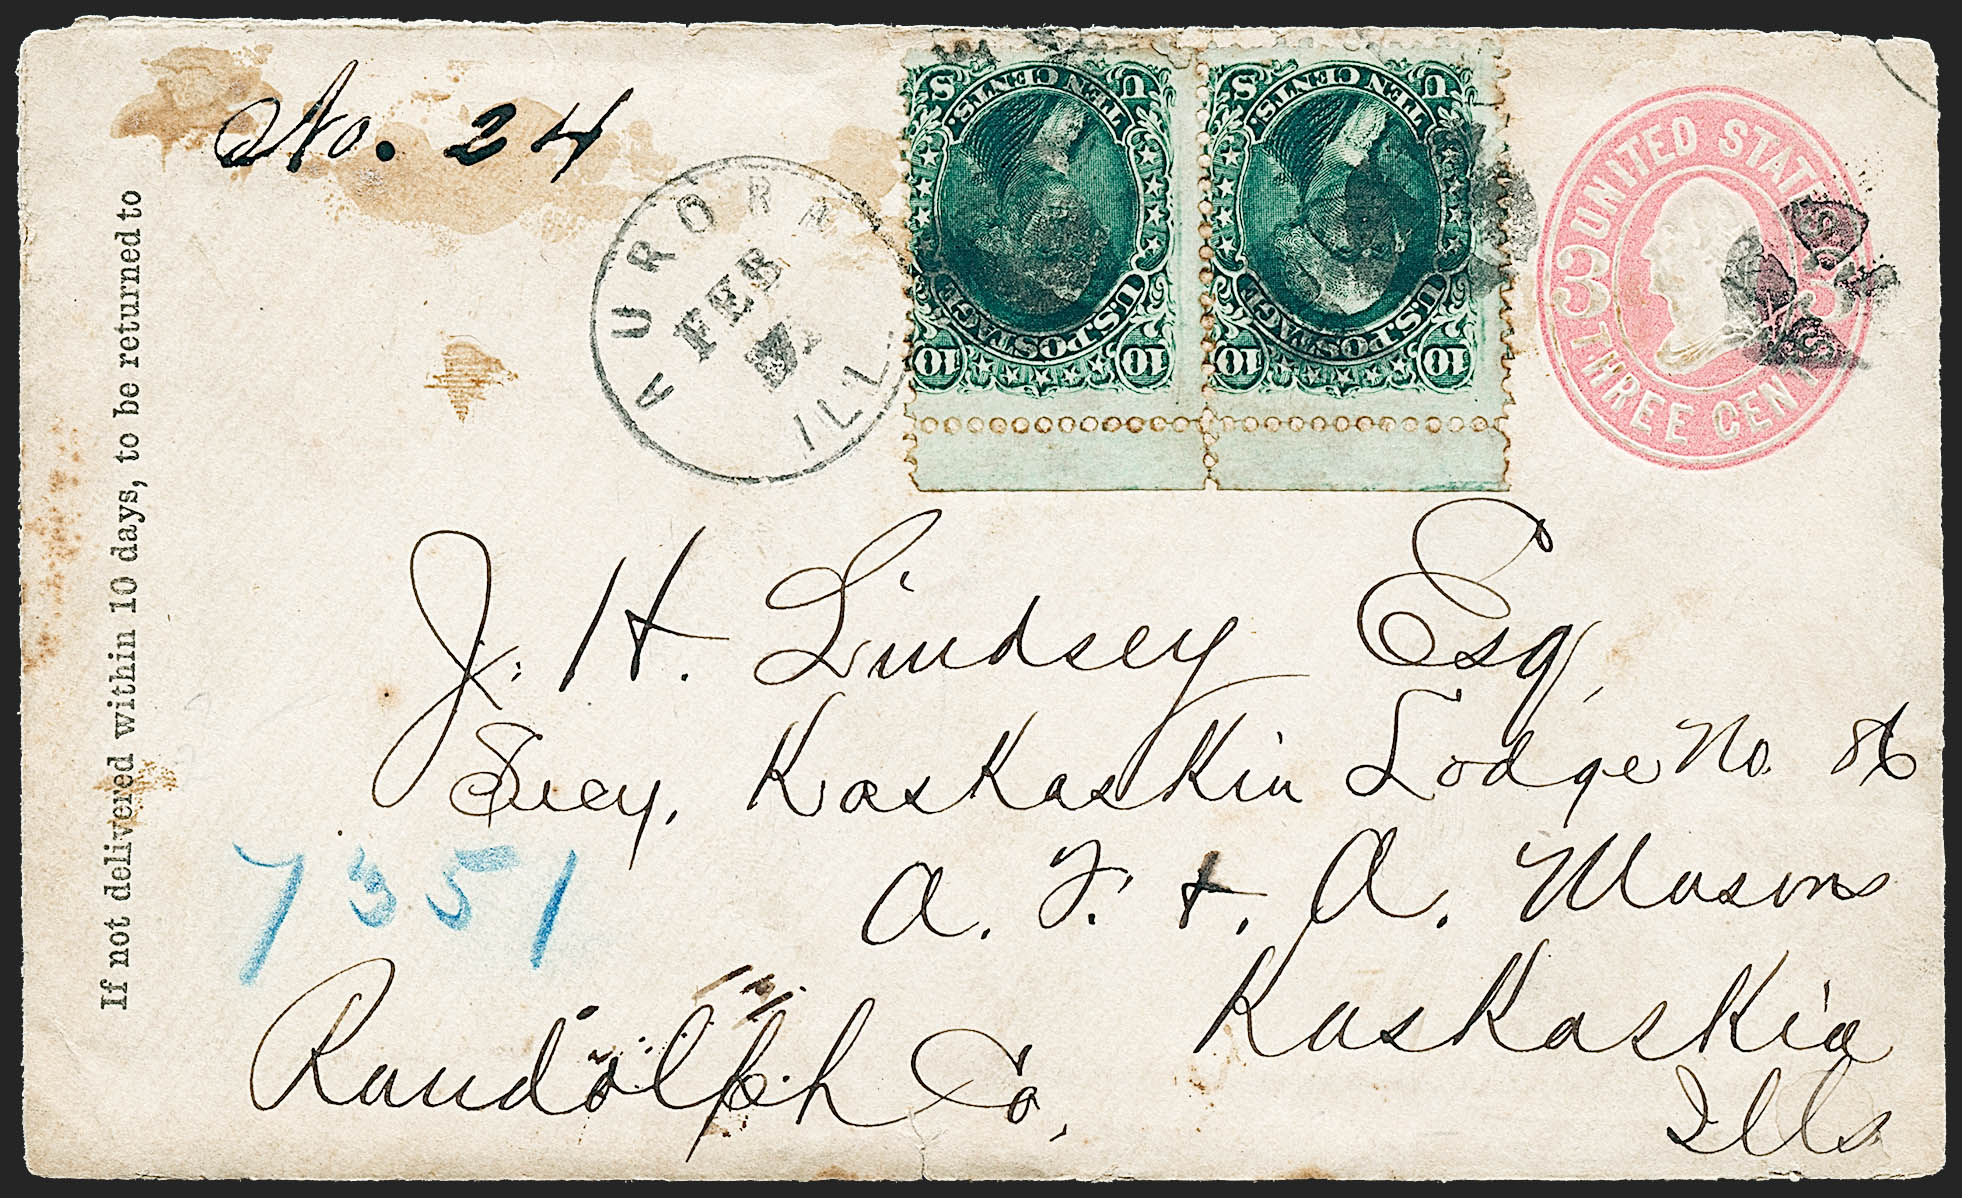 No. 24
If not delivered within 10 days, to be returned to
AURORA
FEB
ILL.
U S
TEN CENTS.
U.S. POSTAGE
10 10
U S
TEN CENTS.
U.S. POSTAGE
10 10
UNITED STATES
3 3
THREE CENTS
J. H. Lindsey Esq.
Secy. Kaskaskia Lodge No. 86
A. F. & A. Masons
Kaskaskia
Randolph Co.
Ills
7351